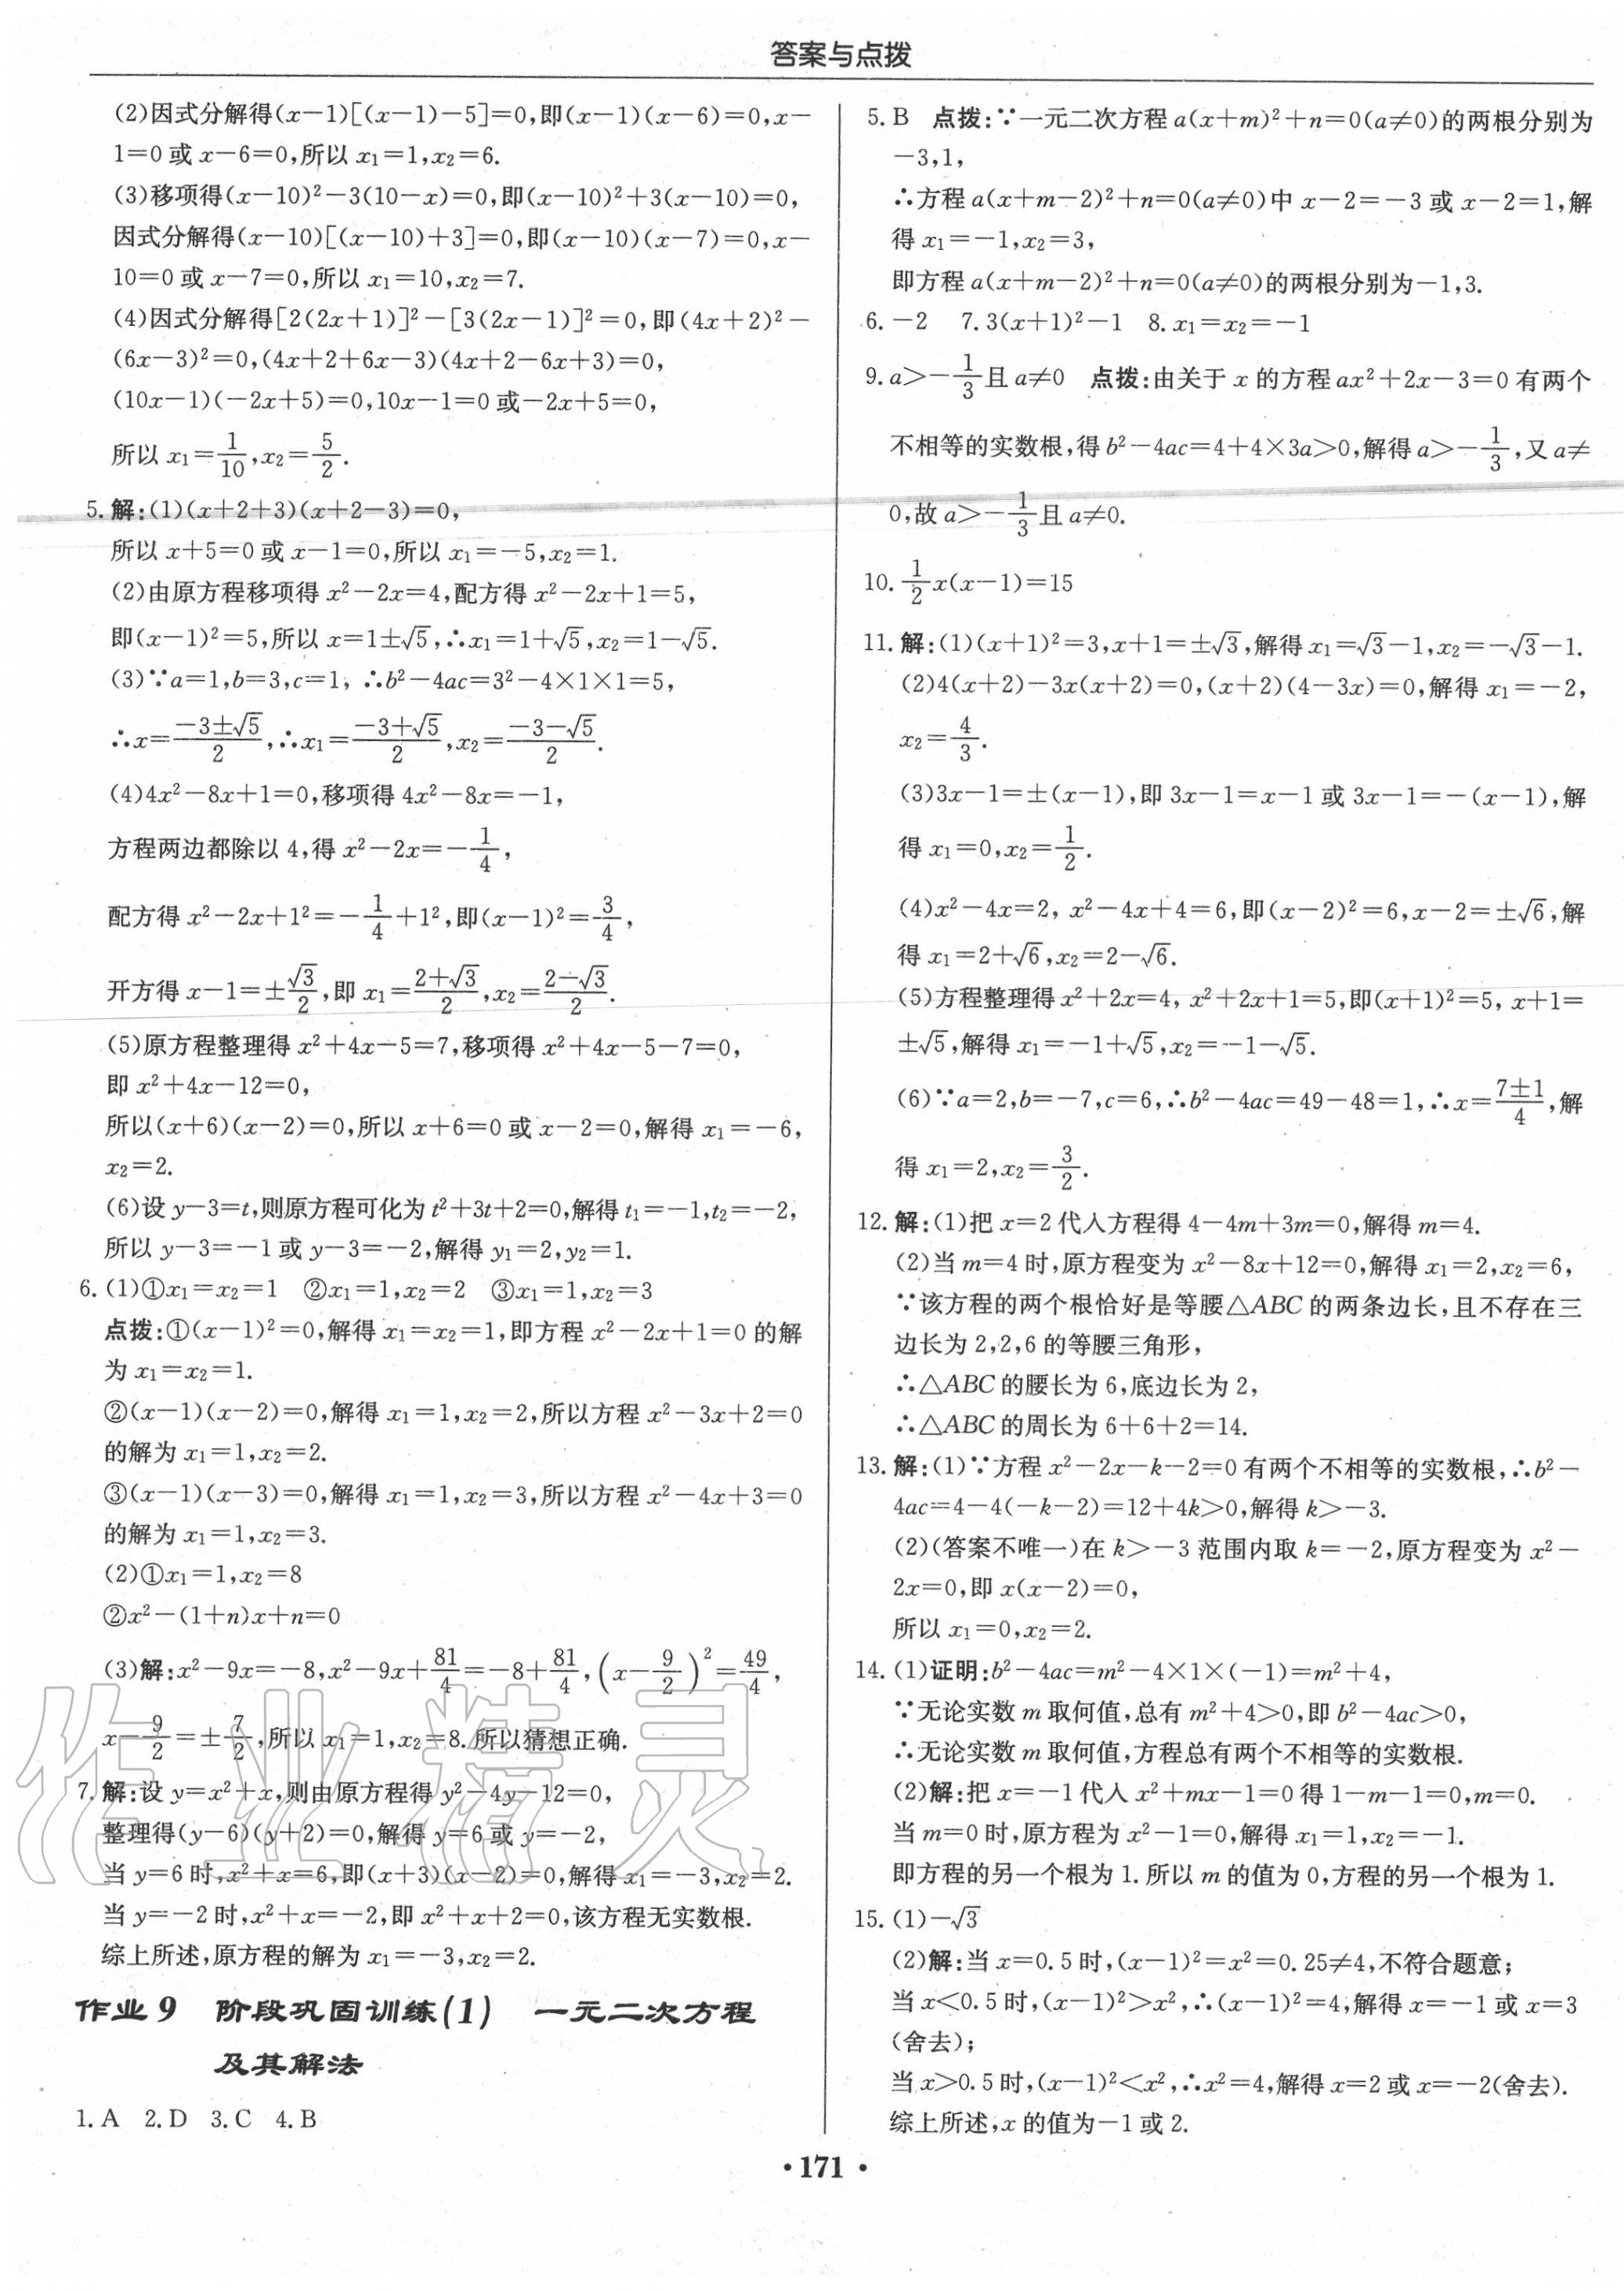 答案与点拨
(2)因式分解得(x−1)[(x−1)−5]=0,即(x−1)(x−6)=0,x−
1=0或x−6=0,所以x₁=1,x₂=6.
(3)移项得(x−10)²−3(10−x)=0,即(x−10)²+3(x−10)=0,
因式分解得(x−10)[(x−10)+3]=0,即(x−10)(x−7)=0,x−
10=0或x−7=0,所以x₁=10,x₂=7.
(4)因式分解得[2(2x+1)]²−[3(2x−1)]²=0,即(4x+2)²−
(6x−3)²=0,(4x+2+6x−3)(4x+2−6x+3)=0,
(10x−1)(−2x+5)=0,10x−1=0或−2x+5=0,
所以x₁=1/10,x₂=5/2.
5.解:(1)(x+2+3)(x+2−3)=0,
所以x+5=0或x−1=0,所以x₁=−5,x₂=1.
(2)由原方程移项得x²−2x=4,配方得x²−2x+1=5,
即(x−1)²=5,所以x=1±√5,∴x₁=1+√5,x₂=1−√5.
(3)∵a=1,b=3,c=1, ∴b²−4ac=3²−4×1×1=5,
∴x=(−3±√5)/2,∴x₁=(−3+√5)/2,x₂=(−3−√5)/2.
(4)4x²−8x+1=0,移项得4x²−8x=−1,
方程两边都除以4,得x²−2x=−1/4,
配方得x²−2x+1²=−1/4+1²,即(x−1)²=3/4,
开方得x−1=±√3/2,即x₁=(2+√3)/2,x₂=(2−√3)/2.
(5)原方程整理得x²+4x−5=7,移项得x²+4x−5−7=0,
即x²+4x−12=0,
所以(x+6)(x−2)=0,所以x+6=0或x−2=0,解得x₁=−6,
x₂=2.
(6)设y−3=t,则原方程可化为t²+3t+2=0,解得t₁=−1,t₂=−2,
所以y−3=−1或y−3=−2,解得y₁=2,y₂=1.
6.(1)①x₁=x₂=1 ②x₁=1,x₂=2 ③x₁=1,x₂=3
点拨:①(x−1)²=0,解得x₁=x₂=1,即方程x²−2x+1=0的解
为x₁=x₂=1.
②(x−1)(x−2)=0,解得x₁=1,x₂=2,所以方程x²−3x+2=0
的解为x₁=1,x₂=2.
③(x−1)(x−3)=0,解得x₁=1,x₂=3,所以方程x²−4x+3=0
的解为x₁=1,x₂=3.
(2)①x₁=1,x₂=8
②x²−(1+n)x+n=0
(3)解:x²−9x=−8,x²−9x+81/4=−8+81/4,(x−9/2)²=49/4,
x−9/2=±7/2,所以x₁=1,x₂=8.所以猜想正确.
7.解:设y=x²+x,则由原方程得y²−4y−12=0,
整理得(y−6)(y+2)=0,解得y=6或y=−2,
当y=6时,x²+x=6,即(x+3)(x−2)=0,解得x₁=−3,x₂=2.
当y=−2时,x²+x=−2,即x²+x+2=0,该方程无实数根.
综上所述,原方程的解为x₁=−3,x₂=2.
作业9 阶段巩固训练(1) 一元二次方程
及其解法
1.A 2.D 3.C 4.B
5.B 点拨:∵一元二次方程a(x+m)²+n=0(a≠0)的两根分别为
−3,1,
∴方程a(x+m−2)²+n=0(a≠0)中x−2=−3或x−2=1,解
得x₁=−1,x₂=3,
即方程a(x+m−2)²+n=0(a≠0)的两根分别为−1,3.
6.−2 7.3(x+1)²−1 8.x₁=x₂=−1
9.a>−1/3且a≠0 点拨:由关于x的方程ax²+2x−3=0有两个
不相等的实数根,得b²−4ac=4+4×3a>0,解得a>−1/3,又a≠
0,故a>−1/3且a≠0.
10.1/2x(x−1)=15
11.解:(1)(x+1)²=3,x+1=±√3,解得x₁=√3−1,x₂=−√3−1.
(2)4(x+2)−3x(x+2)=0,(x+2)(4−3x)=0,解得x₁=−2,
x₂=4/3.
(3)3x−1=±(x−1),即3x−1=x−1或3x−1=−(x−1),解
得x₁=0,x₂=1/2.
(4)x²−4x=2, x²−4x+4=6,即(x−2)²=6,x−2=±√6,解
得x₁=2+√6,x₂=2−√6.
(5)方程整理得x²+2x=4, x²+2x+1=5,即(x+1)²=5, x+1=
±√5,解得x₁=−1+√5,x₂=−1−√5.
(6)∵a=2,b=−7,c=6,∴b²−4ac=49−48=1,∴x=(7±1)/4,解
得x₁=2,x₂=3/2.
12.解:(1)把x=2代入方程得4−4m+3m=0,解得m=4.
(2)当m=4时,原方程变为x²−8x+12=0,解得x₁=2,x₂=6,
∵该方程的两个根恰好是等腰△ABC的两条边长,且不存在三
边长为2,2,6的等腰三角形,
∴△ABC的腰长为6,底边长为2,
∴△ABC的周长为6+6+2=14.
13.解:(1)∵方程x²−2x−k−2=0有两个不相等的实数根,∴b²−
4ac=4−4(−k−2)=12+4k>0,解得k>−3.
(2)(答案不唯一)在k>−3范围内取k=−2,原方程变为x²−
2x=0,即x(x−2)=0,
所以x₁=0,x₂=2.
14.(1)证明:b²−4ac=m²−4×1×(−1)=m²+4,
∵无论实数m取何值,总有m²+4>0,即b²−4ac>0,
∴无论实数m取何值,方程总有两个不相等的实数根.
(2)解:把x=−1代入x²+mx−1=0得1−m−1=0,m=0.
当m=0时,原方程为x²−1=0,解得x₁=1,x₂=−1.
即方程的另一个根为1.所以m的值为0,方程的另一个根为1.
15.(1)−√3
(2)解:当x=0.5时,(x−1)²=x²=0.25≠4,不符合题意;
当x<0.5时,(x−1)²>x²,∴(x−1)²=4,解得x=−1或x=3
(舍去);
当x>0.5时,(x−1)²<x²,∴x²=4,解得x=2或x=−2(舍去).
综上所述,x的值为−1或2.
•171•
作业精灵